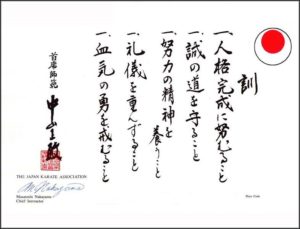 訓
一、人格完成に努むること
一、誠の道を守ること
一、努力の精神を
養うこと
一、礼儀を重んずること
一、血気の勇を戒むること
首席師範
中山正敏
THE JAPAN KARATE ASSOCIATION
M. Nakayama
Masatoshi Nakayama
Chief Instructor